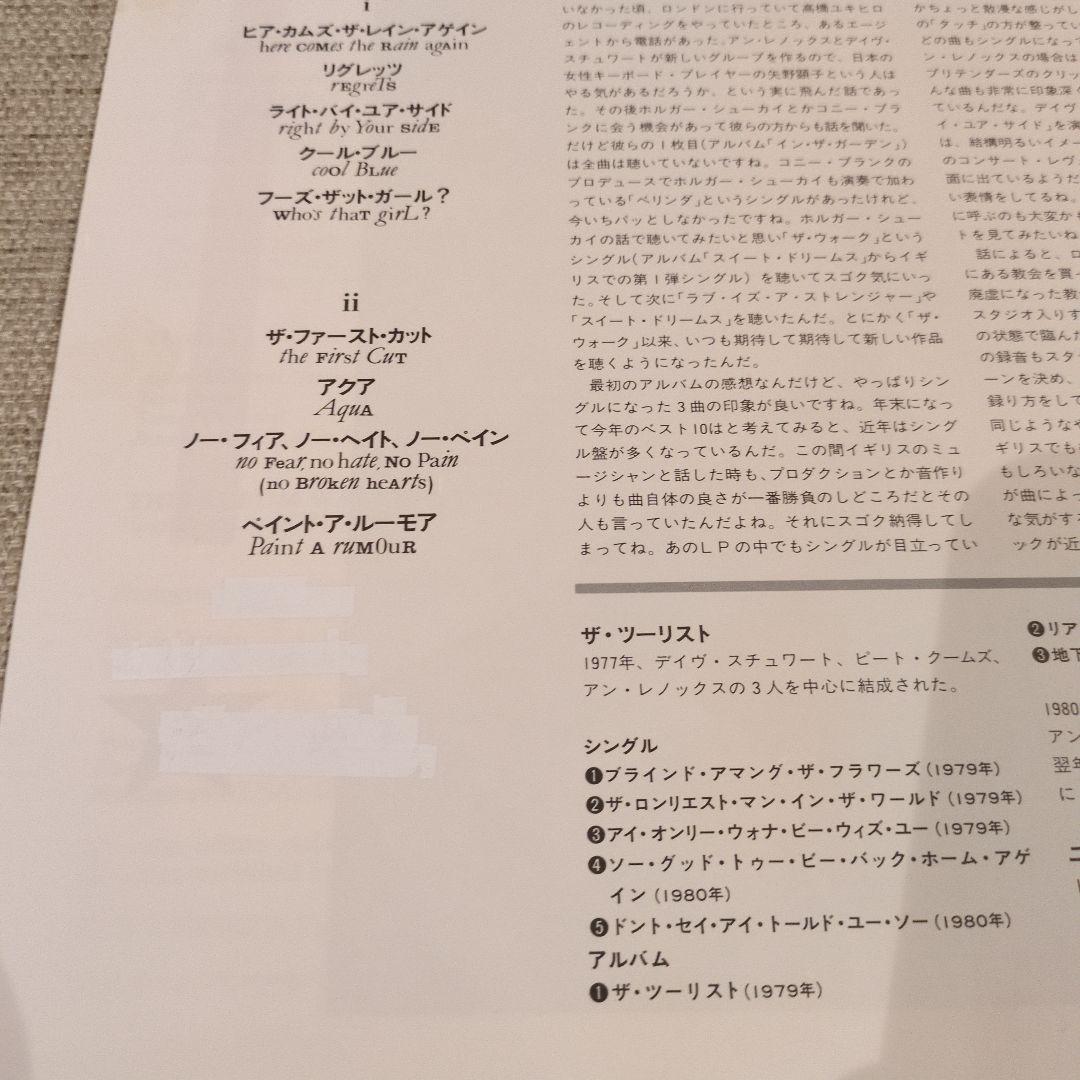 i
ヒア・カムズ・ザ・レイン・アゲイン
here comes the Rain again
リグレッツ
rEgreTs
ライト・バイ・ユア・サイド
right by Your sidE
クール・ブルー
coOl BLue
フーズ・ザット・ガール？
Who's thaT girL?
ii
ザ・ファースト・カット
the First CuT
アクア
AquA
ノー・フィア、ノー・ヘイト、ノー・ペイン
no Fear, no hate, No Pain
(no Broken heArts)
ペイント・ア・ルーモア
Paint A ruMOuR
いなかった頃、ロンドンに行っていて高橋ユキヒロ
のレコーディングをやっていたところ、あるエージ
ェントから電話があった。アン・レノックスとデイヴ・
スチュワートが新しいグループを作るので、日本の
女性キーボード・プレイヤーの矢野顕子という人は
やる気があるだろうか、という実に飛んだ話であっ
た。その後ホルガー・シューカイとかコニー・プラ
ンクに会う機会があって彼らの方からも話を聞いた。
だけど彼らの1枚目(アルバム「イン・ザ・ガーデン」)
は全曲は聴いていないですね。コニー・プランクの
プロデュースでホルガー・シューカイも演奏で加わ
っている「ベリンダ」というシングルがあったけれど、
今いちパッとしなかったですね。ホルガー・シュー
カイの話で聴いてみたいと思い「ザ・ウォーク」という
シングル(アルバム「スイート・ドリームス」からイギ
リスでの第1弾シングル) を聴いてスゴク気にいっ
た。そして次に「ラブ・イズ・ア・ストレンジャー」や
「スイート・ドリームス」を聴いたんだ。とにかく「ザ・
ウォーク」以来、いつも期待して期待して新しい作品
を聴くようになったんだ。
最初のアルバムの感想なんだけど、やっぱりシン
グルになった3曲の印象が良いですね。年末になっ
て今年のベスト10はと考えてみると、近年はシング
ル盤が多くなっているんだ。この間イギリスのミュ
ージシャンと話した時も、プロダクションとか音作り
よりも曲自体の良さが一番勝負のしどころだとその
人も言っていたんだよね。それにスゴク納得してし
まってね。あのLPの中でもシングルが目立ってい
かちょっと散漫な感じがし
の「タッチ」の方が整ってい
どの曲もシングルになって
ン・レノックスの場合は
プリテンダーズのクリッ
んな曲も非常に印象深く
ているんだな。デイヴ
イ・ユア・サイド」を演
は、結構明るいイメー
のコンサート・レヴ
面に出ているようだ
い表情をしてるね。
に呼ぶのも大変か
トを見てみたいね
話によると、ロ
にある教会を買っ
廃虚になった教
スタジオ入りす
の状態で臨んだ
の録音もスタ
ーンを決め、
録り方をして
同じようなや
ギリスでも
もしろいな
が曲によっ
な気がする
ックが近
ザ・ツーリスト
1977年、デイヴ・スチュワート、ピート・クームズ、
アン・レノックスの3人を中心に結成された。
シングル
❶ブラインド・アマング・ザ・フラワーズ(1979年)
❷ザ・ロンリエスト・マン・イン・ザ・ワールド(1979年)
❸アイ・オンリー・ウォナ・ビー・ウィズ・ユー(1979年)
❹ソー・グッド・トゥー・ビー・バック・ホーム・アゲ
イン(1980年)
❺ドント・セイ・アイ・トールド・ユー・ソー(1980年)
アルバム
❶ザ・ツーリスト(1979年)
❷リア
❸地下
1980
アン
翌年
に